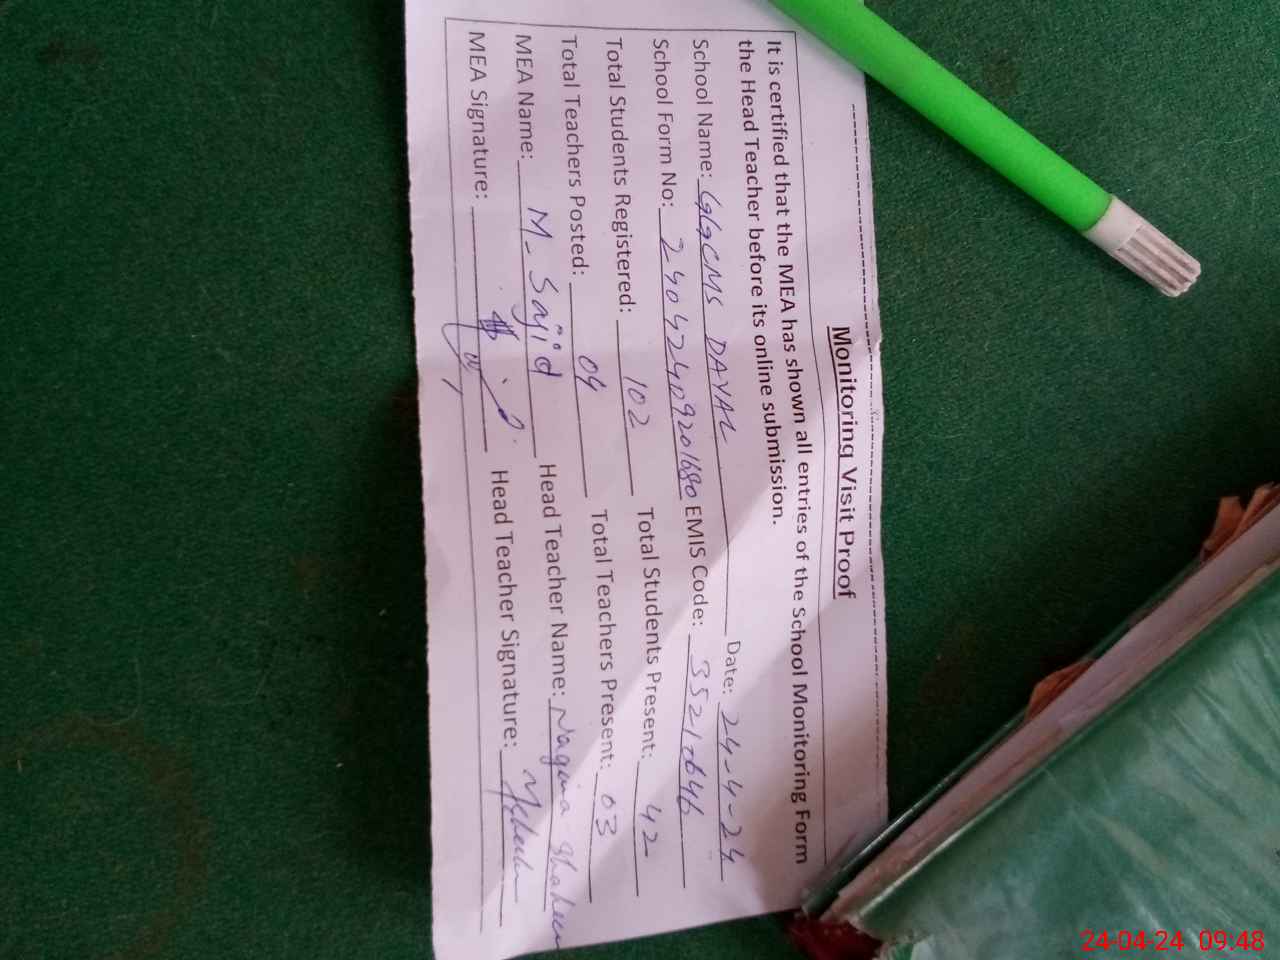 Monitoring Visit Proof
It is certified that the MEA has shown all entries of the School Monitoring Form
the Head Teacher before its online submission.
School Name: GGCMS DAYAL Date: 24-4-24
School Form No: 24042409201680 EMIS Code: 35210646
Total Students Registered: 102 Total Students Present: 42
Total Teachers Posted: 04 Total Teachers Present: 03
MEA Name: M- Sajid Head Teacher Name: Nagina Shaheen
MEA Signature: Head Teacher Signature:
24-04-24 09:48